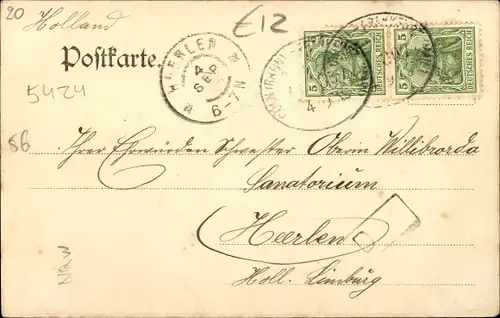 20
Holland
£12
Postkarte.
5424
86
HEERLEN
4
SEP
6-7N
5 DEUTSCHES REICH
5 DEUTSCHES REICH
Ihrer Ehrwürden Schwester Oberin Willibrorda
Sanatorium
Heerlen
Holl. Limburg
NRW